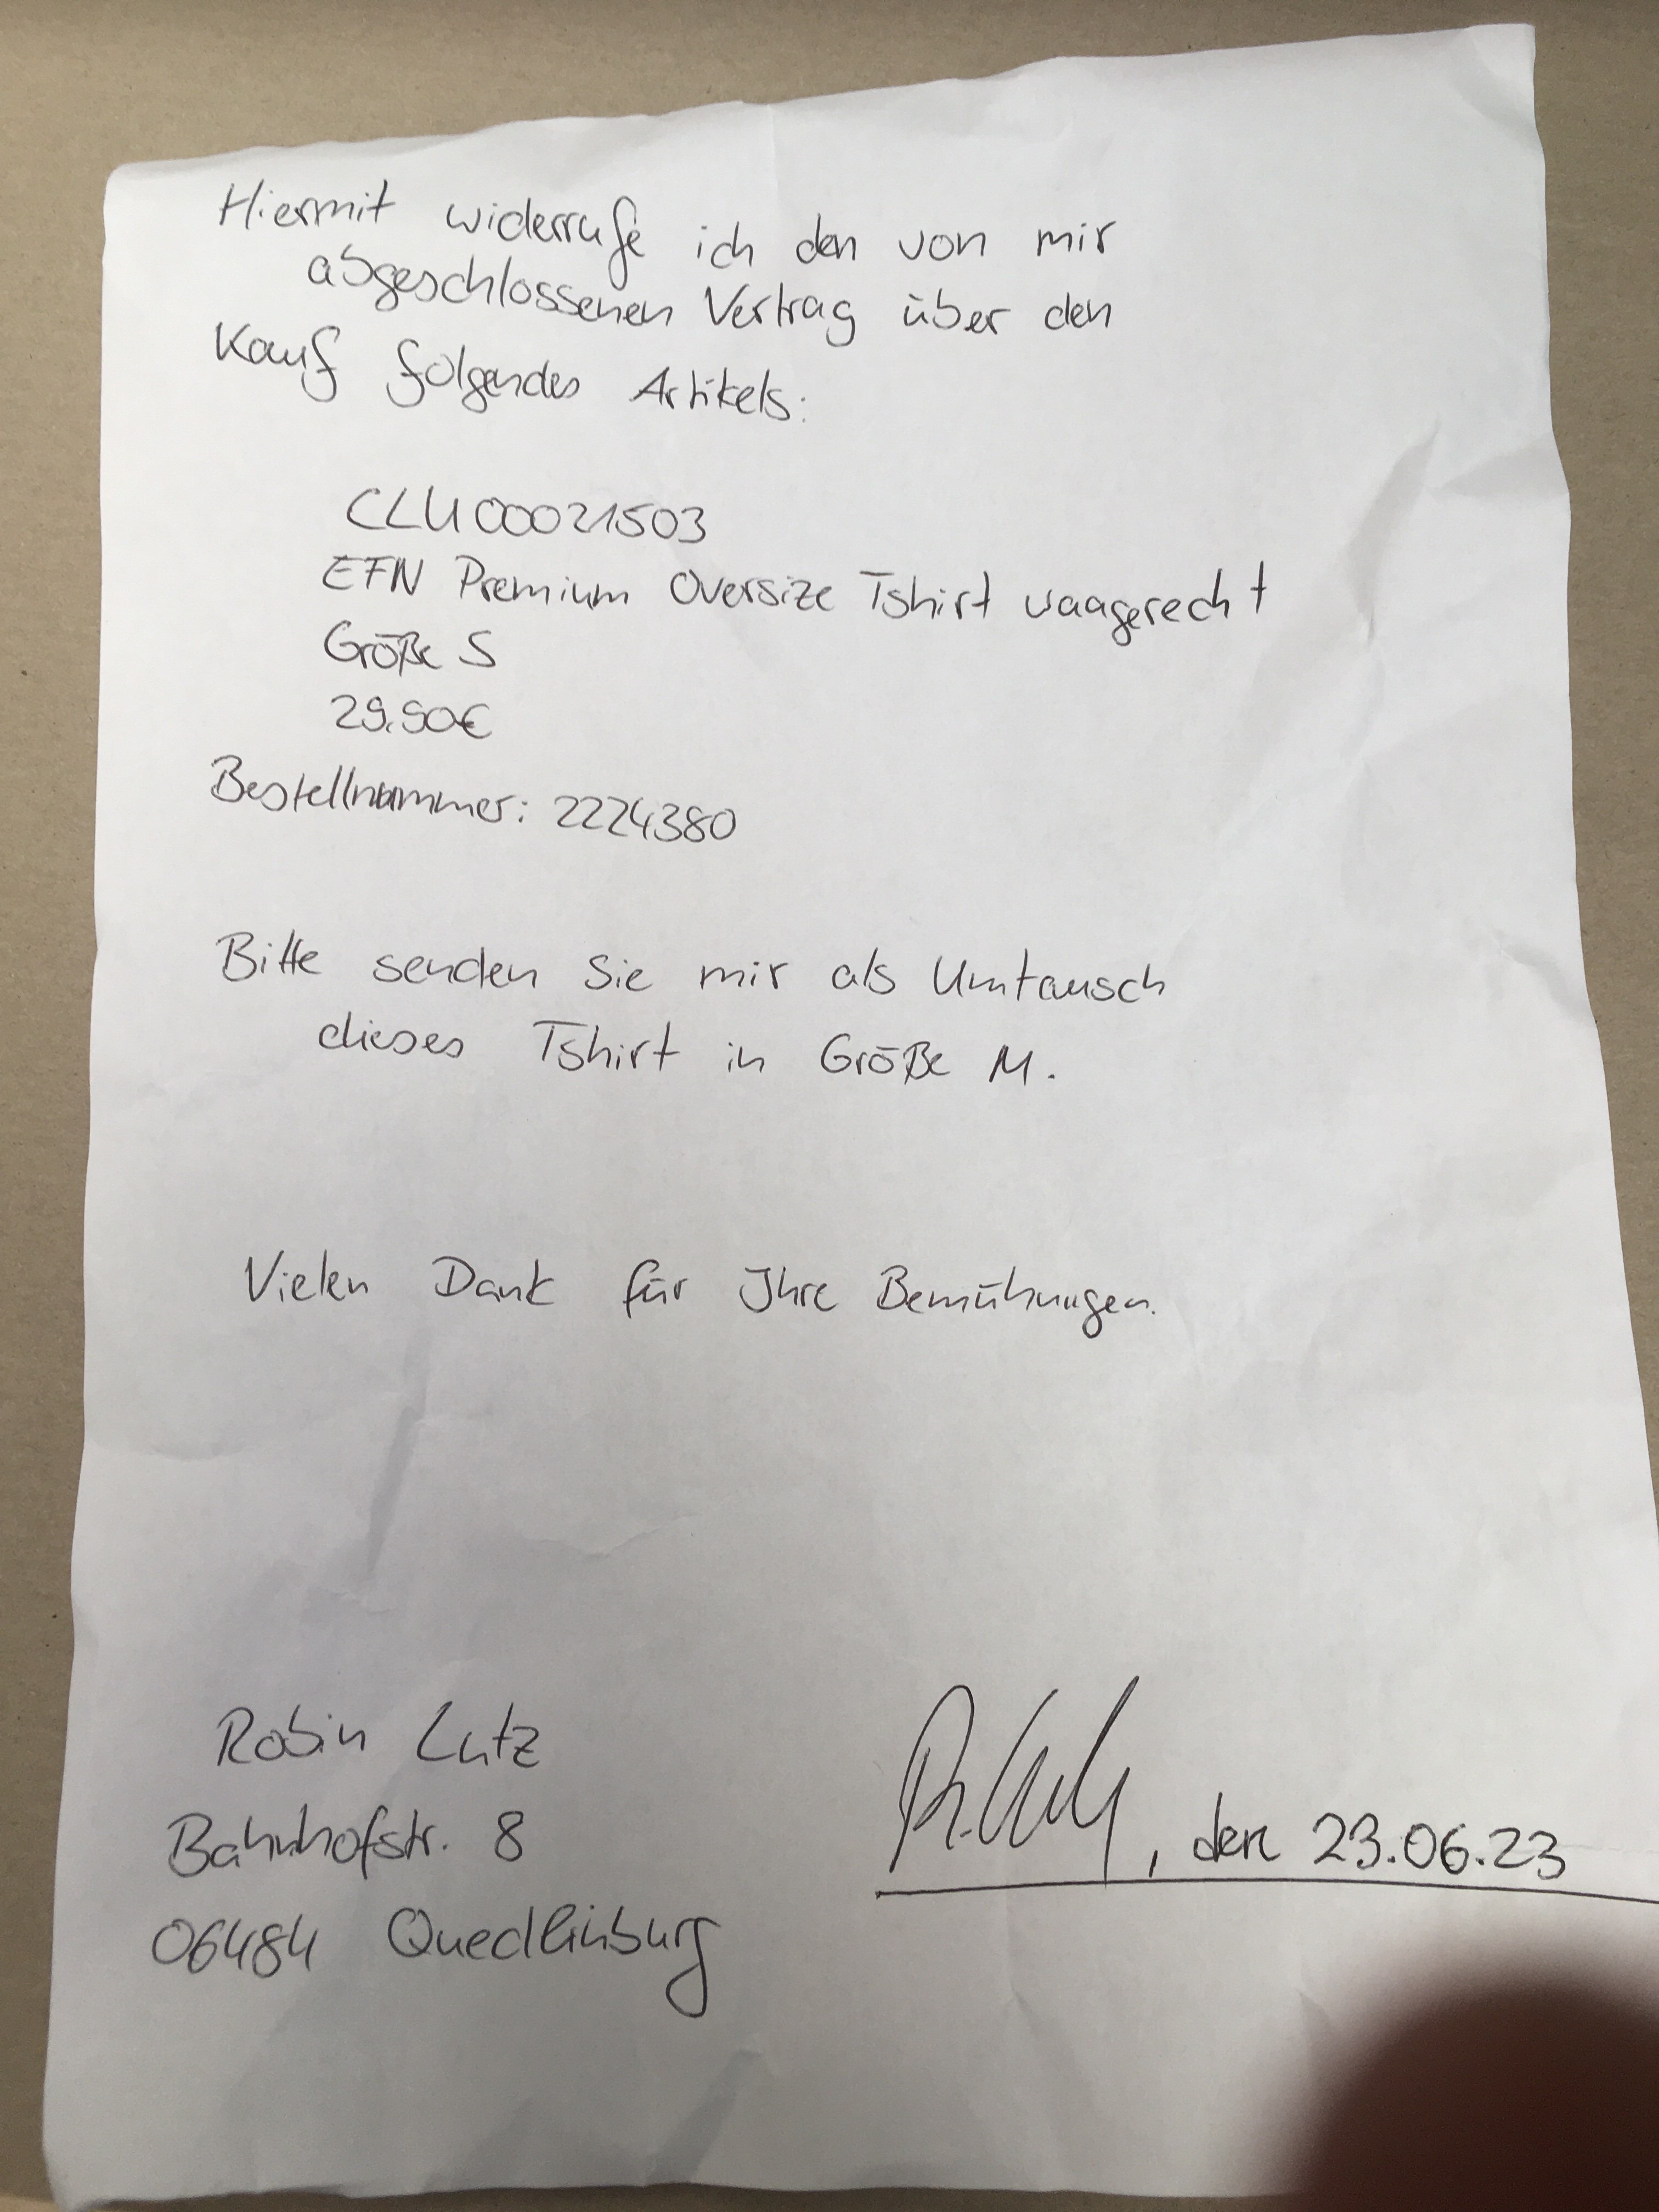 Hiermit widerrufe ich den von mir
abgeschlossenen Vertrag über den
Kauf folgendes Artikels:
CLU00021503
EFN Premium Oversize Tshirt waagerecht
Größe S
29.90€
Bestellnummer: 2224380
Bitte senden Sie mir als Umtausch
dieses Tshirt in Größe M.
Vielen Dank für Ihre Bemühungen.
Robin Lutz
Bahnhofstr. 8
06484 Quedlinburg
, den 23.06.23